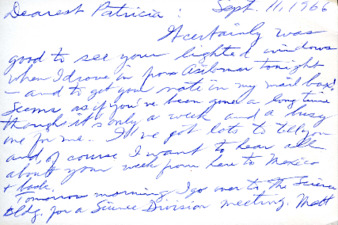 Dearest Patricia: Sept. 11, 1966
It certainly was
good to see your lighted windows
when I drove in from Asilomar tonight
– and to get your note in my mail box!
Seems as if you've been gone a long time
though it's only a week and a busy
one for me. I've got lots to tell you
and, of course I want to hear all
about your week from here to Mexico
& back.
Tomorrow morning I go over to the Science
Bldg. for a Science Division meeting. Matt